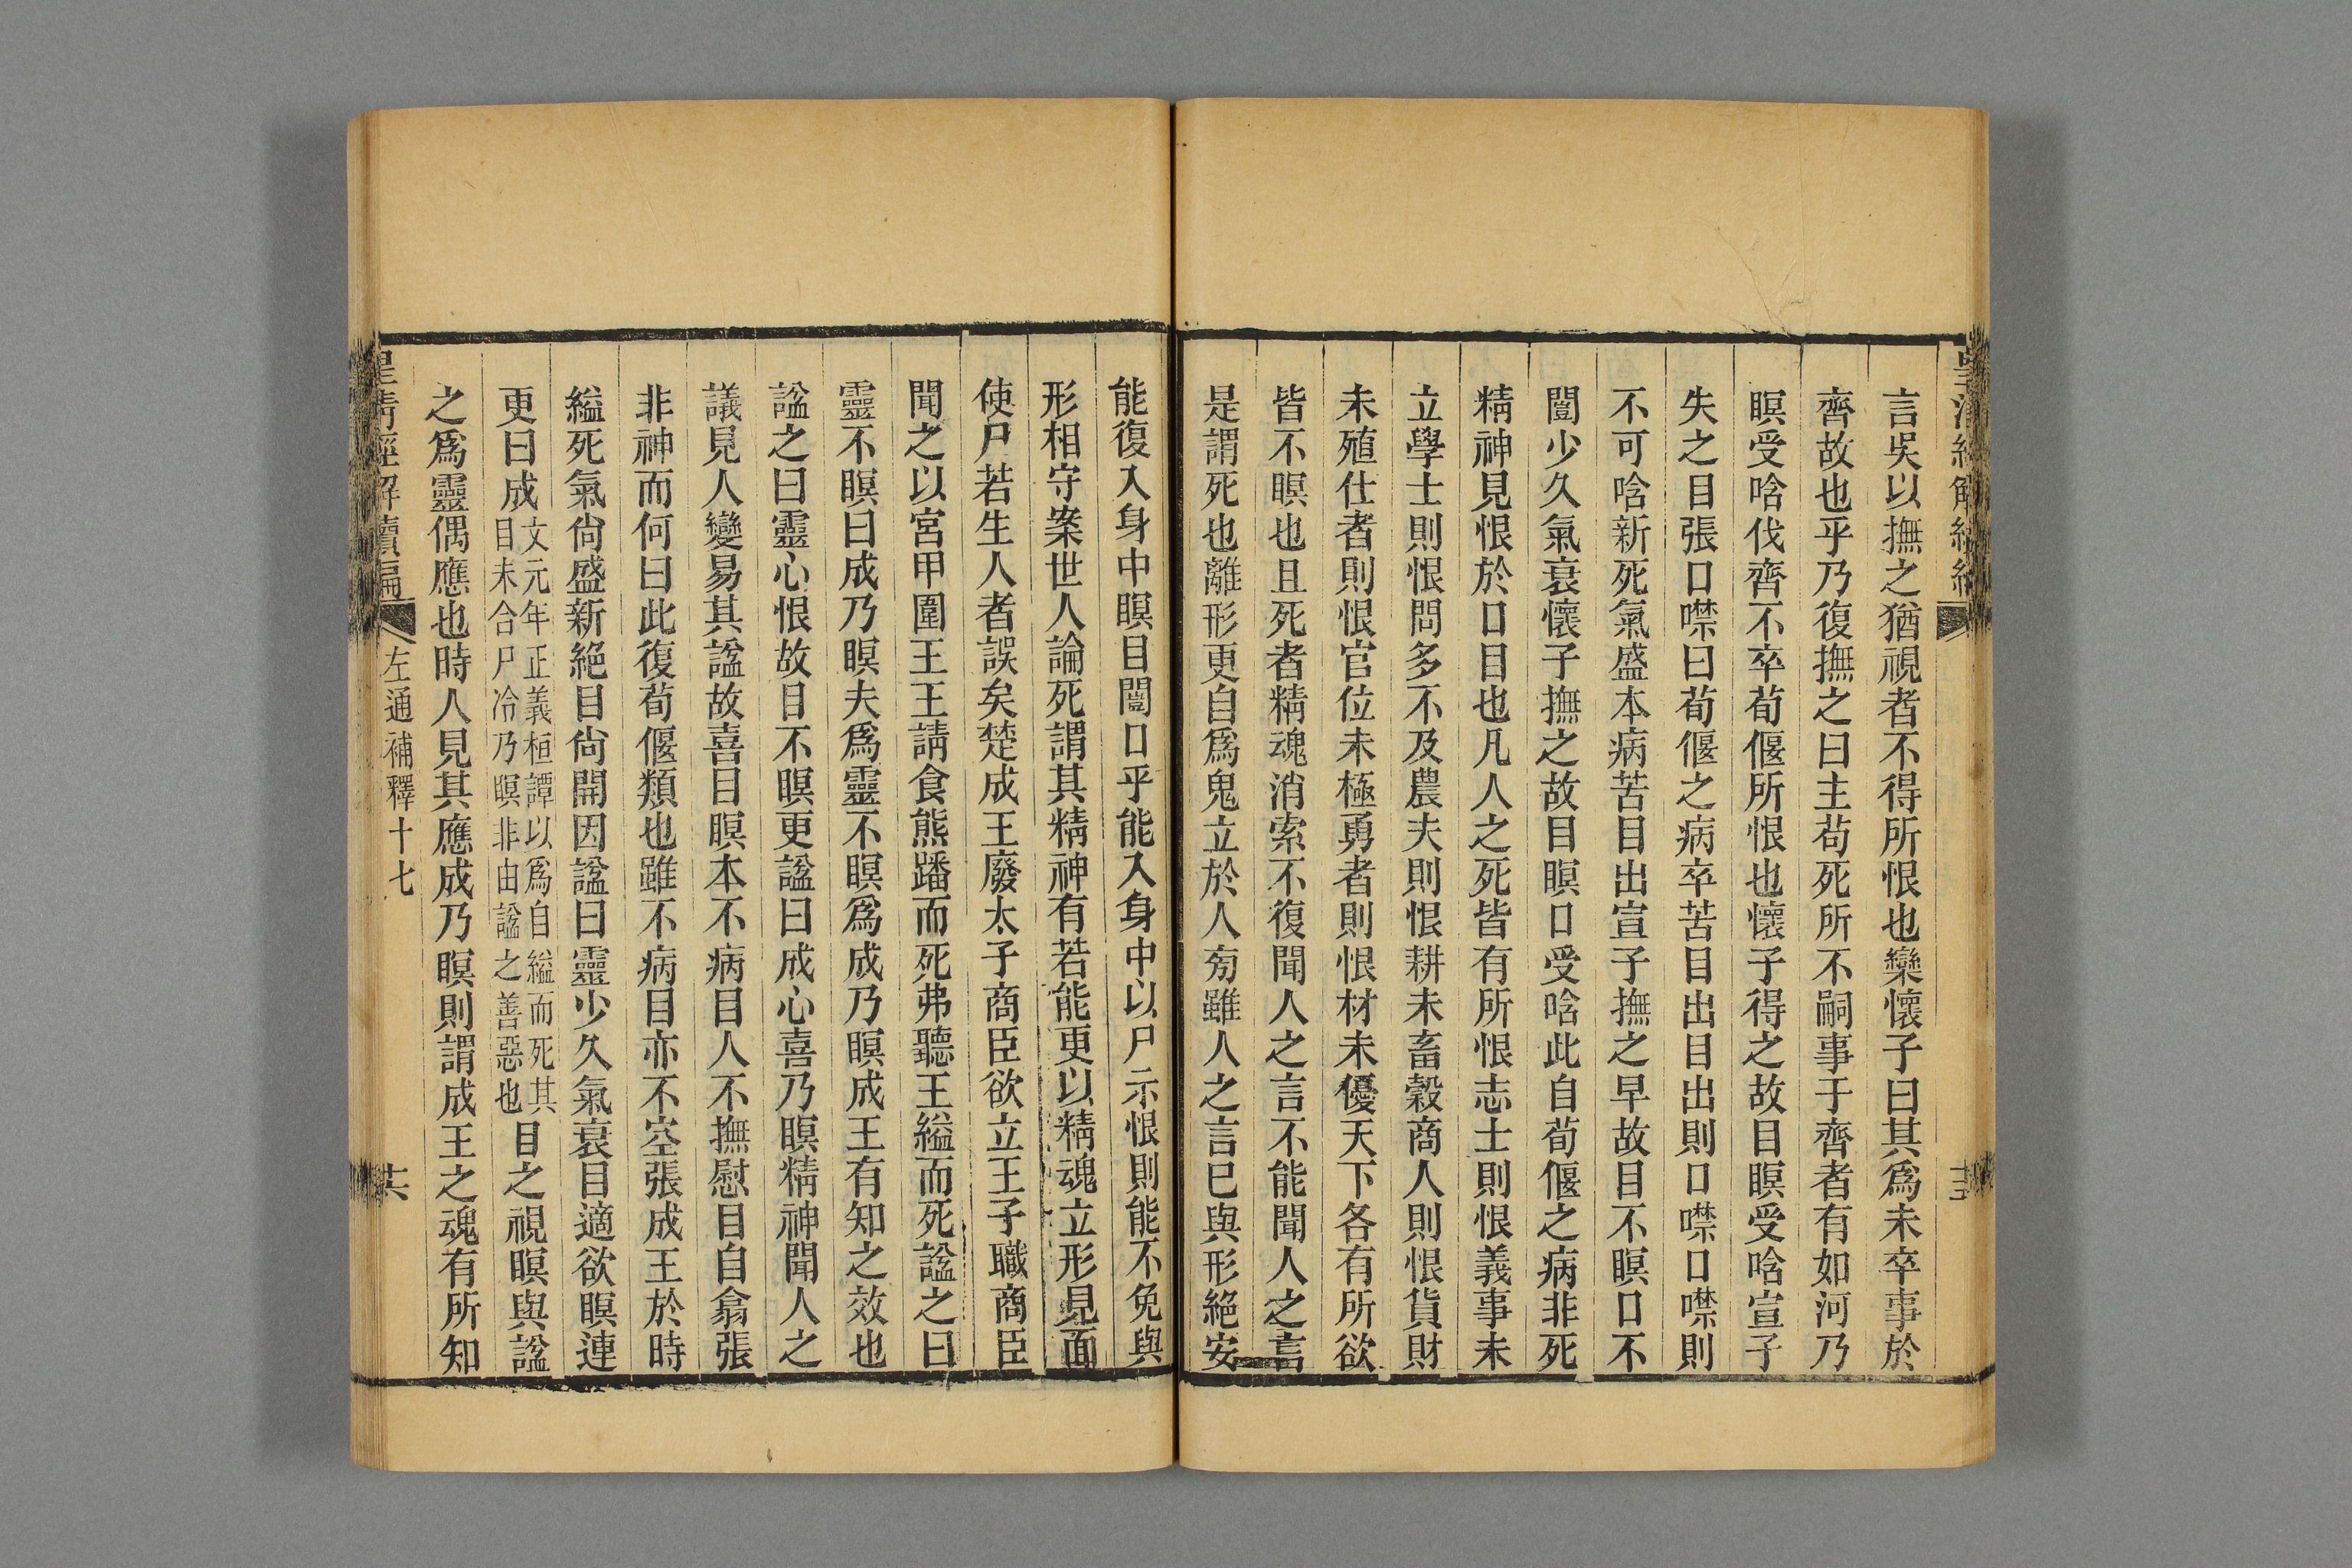 言吳以撫之猶視者不得所恨也欒懷子曰其爲未卒事於
齊故也乎乃復撫之曰主苟死所不嗣事于齊者有如河乃
瞑受唅伐齊不卒荀偃所恨也懷子得之故目瞑受唅宣子
失之目張口噤曰荀偃之病卒苦目出目出則口噤口噤則
不可唅新死氣盛本病苦目出宣子撫之早故目不瞑口不
闓少久氣衰懷子撫之故目瞑口受唅此自荀偃之病非死
精神見恨於口目也凡人之死皆有所恨志士則恨義事未
立學士則恨問多不及農夫則恨耕未畜穀商人則恨貨財
未殖仕者則恨官位未極勇者則恨材未優天下各有所欲
皆不瞑也且死者精魂消索不復聞人之言不能聞人之言
是謂死也離形更自爲鬼立於人㫄雖人之言巳與形絕安
能復入身中瞑目闓口乎能入身中以尸示恨則能不免與
形相守案世人論死謂其精神有若能更以精魂立形見面
使尸若生人者誤矣楚成王廢太子商臣欲立王子職商臣
聞之以宮甲圍王王請食熊蹯而死弗聽王縊而死諡之曰
靈不瞑曰成乃瞑夫爲靈不瞑爲成乃瞑成王有知之效也
諡之曰靈心恨故目不瞑更諡曰成心喜乃瞑精神聞人之
議見人變易其諡故喜目瞑本不病目人不撫慰目自翕張
非神而何曰此復荀偃類也雖不病目亦不空張成王於時
縊死氣尙盛新絕目尙開因諡曰靈少久氣衰目適欲瞑連
更曰成文元年正義桓譚以爲自縊而死其目未合尸冷乃瞑非由諡之善惡也目之視瞑與諡
之爲靈偶應也時人見其應成乃瞑則謂成王之魂有所知
皇清經解續編
左通補釋十七
十六